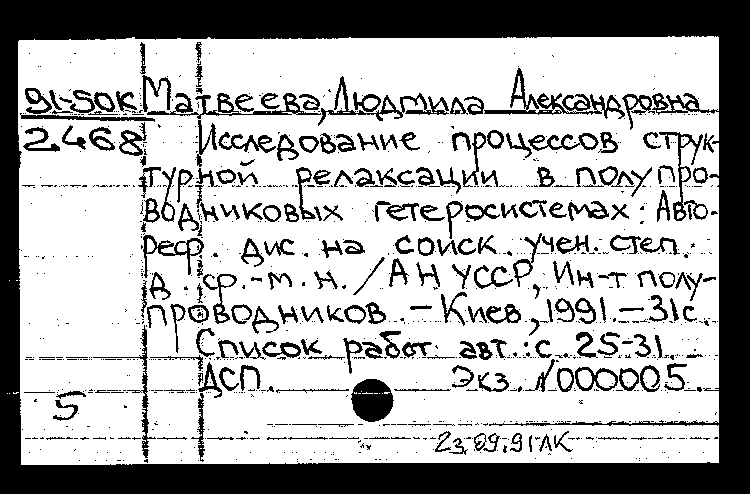 91-50К Матвеева, Людмила Александровна
2.468 Исследование процессов струк-
турной релаксации в полупро-
водниковых гетеросистемах: Авто-
реф. дис. на соиск. учен. степ.
д. ф.-м. н. / АН УССР, Ин-т полу-
проводников. - Киев, 1991. - 31 с.
Список работ авт.: с. 25-31.
ДСП. Экз. N000005.
5
23.09.91 АК